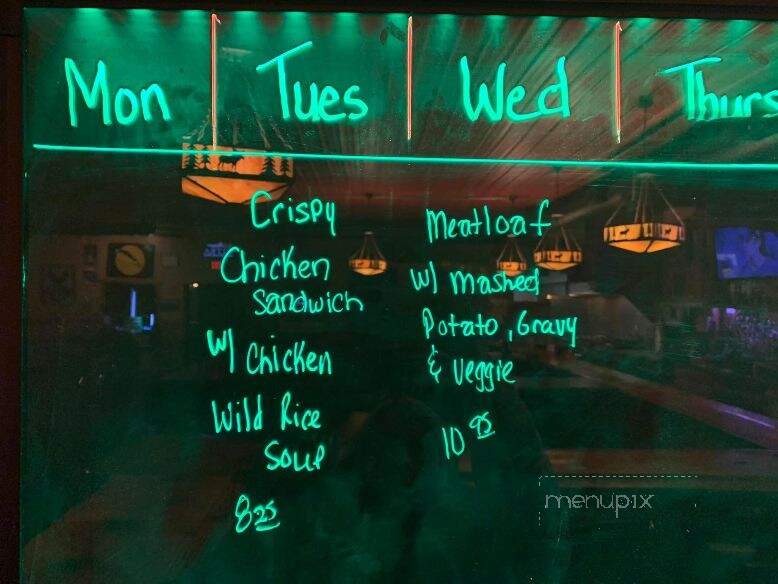 Mon Tues Wed Thurs
Crispy
Chicken
Sandwich
w/ Chicken
Wild Rice
Soup
8 25
Meatloaf
w/ mashed
Potato, Gravy
& veggie
10 95
menupix